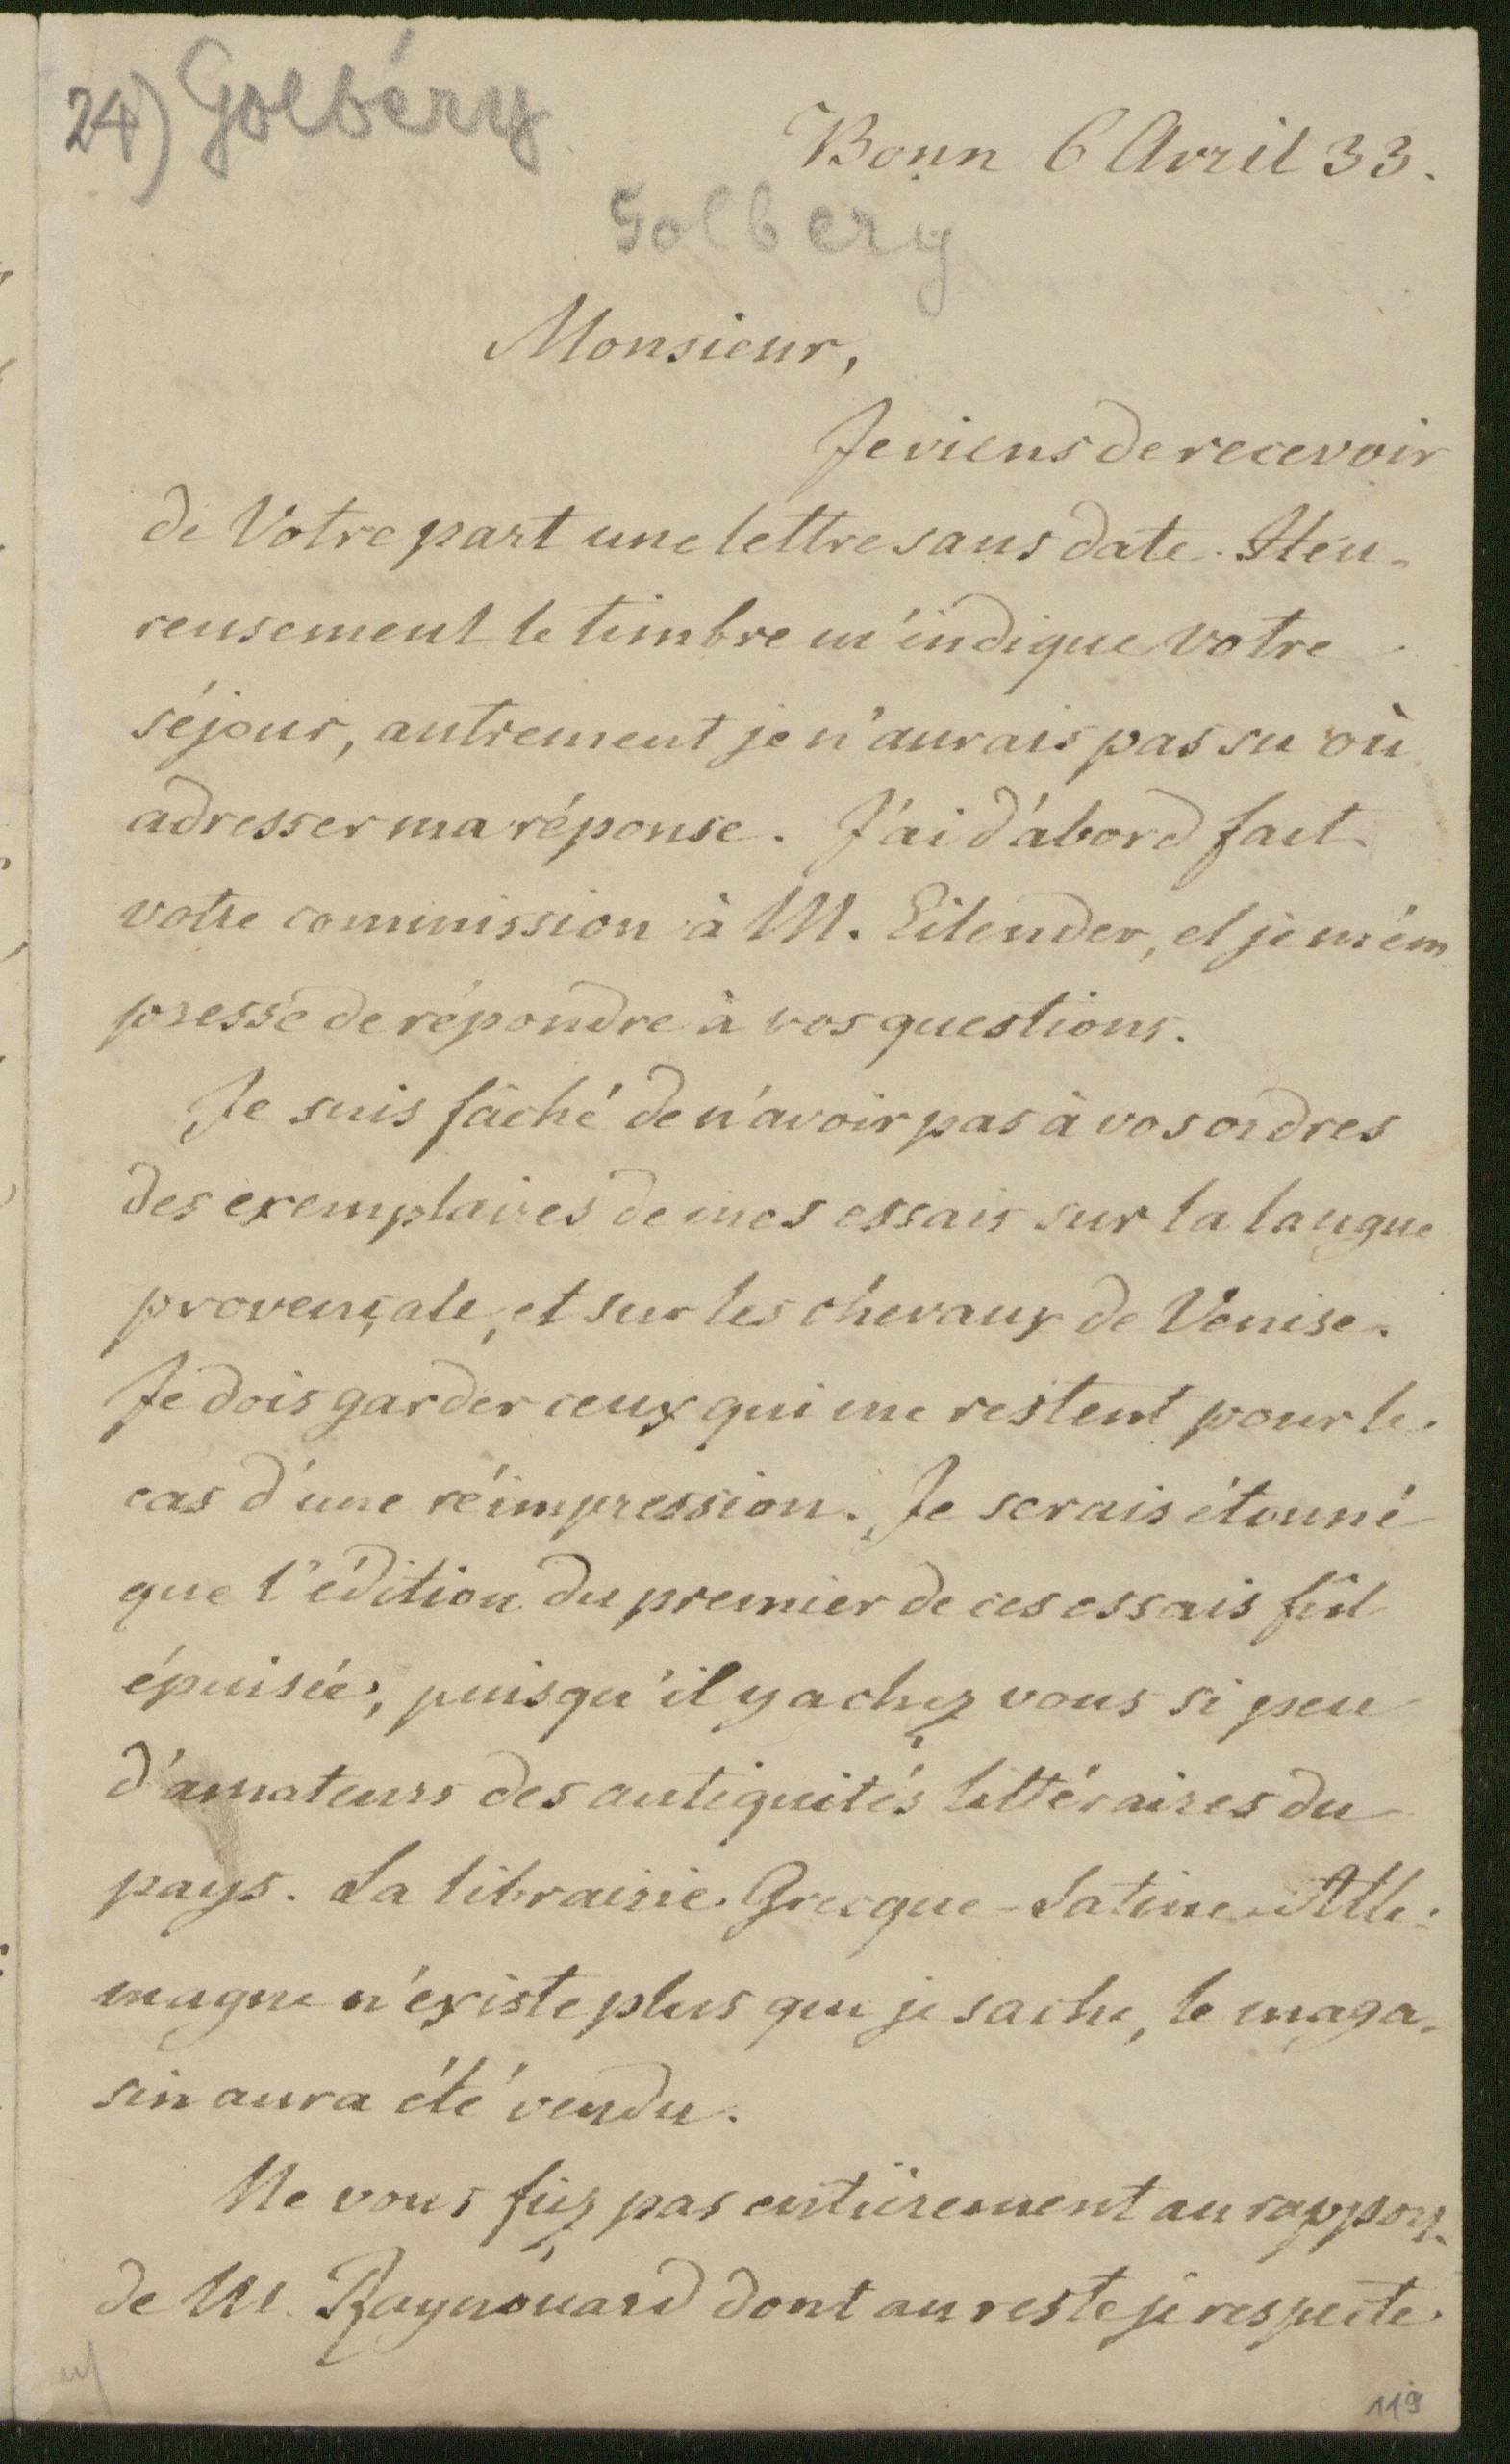 24) Golbéry
Bonn 6 Avril 33.
Golbery
Monsieur,
Je viens de recevoir
de Votre part une lettre sans date. Heu-
reusement le timbre m'indique votre
séjour, autrement je n'aurais pas su où
adresser ma réponse. J'ai d'abord fait
votre commission à M. Eilender, et je m'em
presse de répondre à vos questions.
Je suis fâché de n'avoir pas à vos ordres
des exemplaires de mes essais sur la langue
provençale, et sur les chevaux de Venise.
Je dois garder ceux qui me restent pour le
cas d'une réimpression. Je serais étonné
que l'édition du premier de ces essais fût
épuisée, puisqu'il y a chez vous si peu
d'amateurs des antiquités littéraires du
pays. La librairie Grecque-Latine-Alle-
magne n'existe plus que je sache, le maga-
sin aura été vendu.
Ne vous fiez pas entièrement au rapport
de M. Raynouard dont au reste je respecte
119